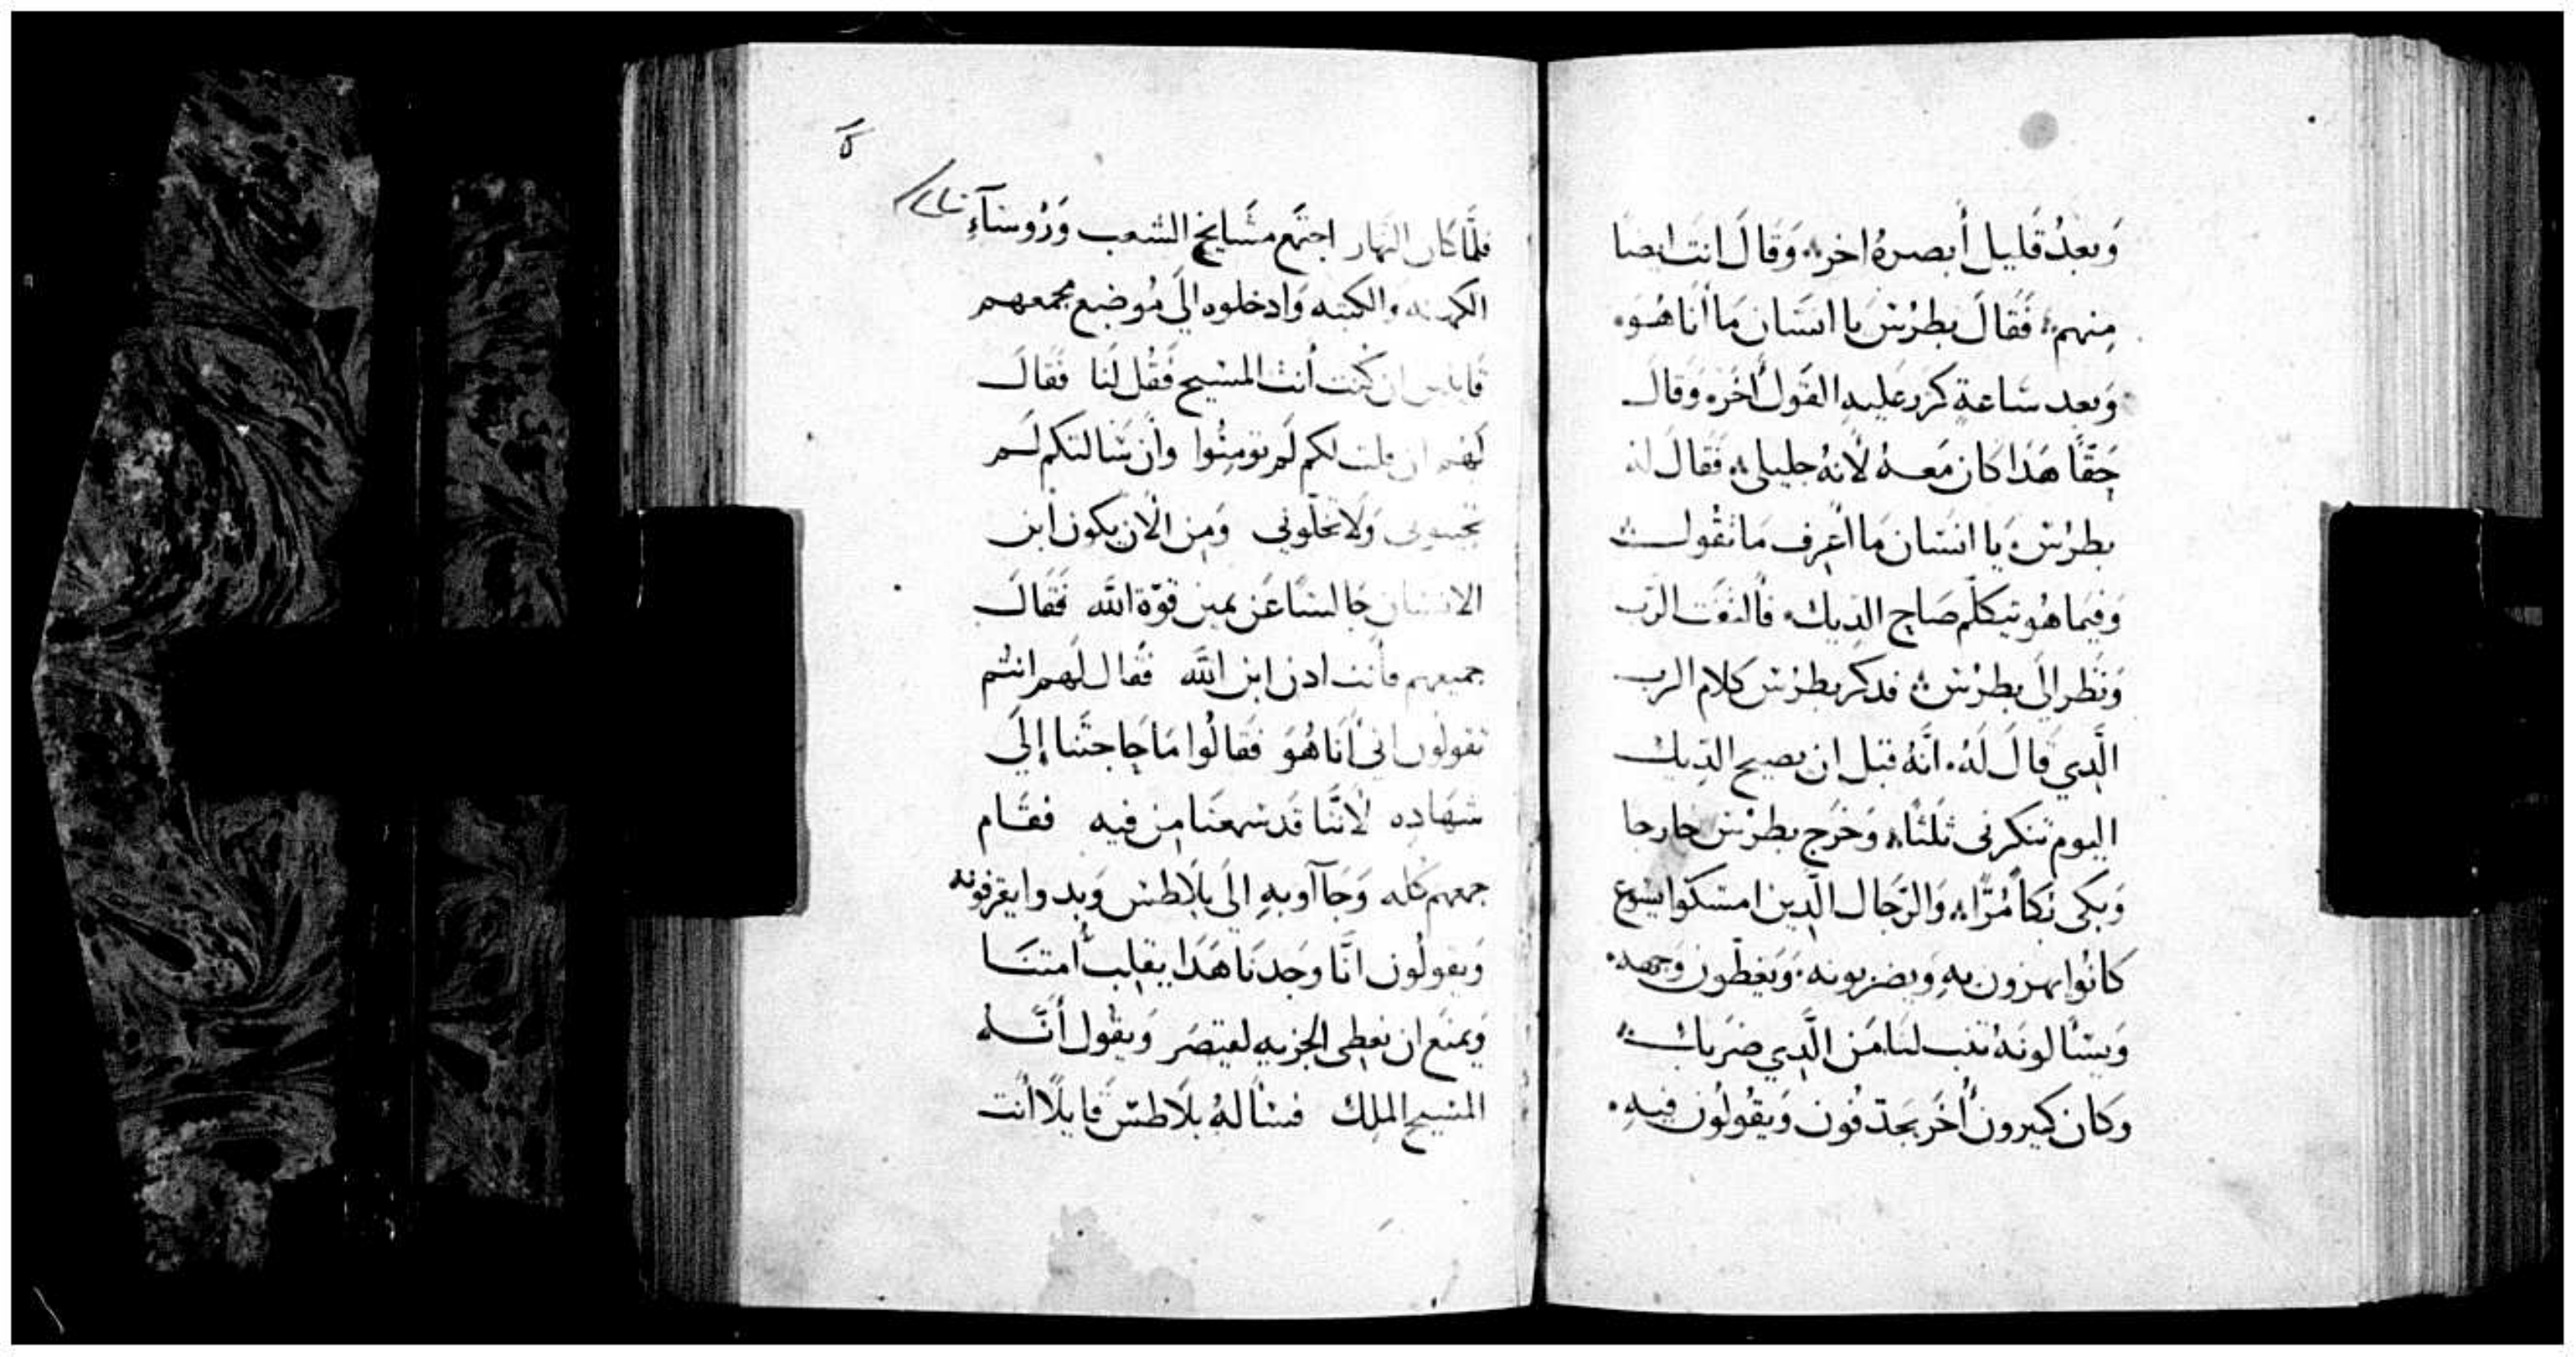 وَبعدُ قَليل أبصرهُ اخر؞ وَقَالَ انت ايضا
مِنهم؞ فَقَالَ بطرُس يا انسَان مَا أنا هُوَ
وَبعد سَاعةٍ كرّر عَليهِ القَول أخَر؞ وَقَال
حَقًّا هَذا كانَ مَعهُ لأنهُ جليلي؞ فَقالَ لهُ
بطرُس يَا انسَان مَا أعرِف مَا تقُول
وَفيمَا هُو يتكلّم صَاح الدّيك؞ فَالتفت الرّب
وَنَظر الَي بطرُس؞ فدكر بطرُس كلام الرب
الَّدِي قَالَ لَهُ؞ انَّهُ قبل ان يصيح الدّيك
اليوم تنكرني ثلثا؞ وَخرَج بطرُس خارجا
وَبكي بُكأ مُرّا؞ وَالرّجَال الّدين امسَكوا يسُوع
كانُوا يهزون بهِ وَيضربونه؞ وَيغطّون وَجهه
وَيسَالونَهُ تنب لنا مَن الَّدِي ضرَبك؞
وَكان كثيرون أُخَر يجدّفُون وَيقُولُون فيهِ
فلَّما كان النهار اجتَمع مشَايخ الشعب وَرُوسَآءِ
الكهنه وَالكتبه وَادخلوه الَي مُوضع مجمعهم
قايلين ان كنت أنت المسيح فَقُل لَنا فَقَال
لَهم ان قلت لكم لَم تومِنُوا وَان سَالتكم لَم
تجيبوني وَلَا تخلّوني وَمِن الآن يكون ابن
الانسَان جَالسًا عَن يمين قوّة اللَّه فَقَال
جميعهم فأنت ادن ابن اللَّه فَقَال لَهم انتُم
تقولُون اني أنا هُوَ فَقَالُوا مَا حَاجتنَا إلَي
شهَادِه لأنّنا قَد سَمعنَا مِن فيه فقَام
جمعهم كله وَجَآأوا بهِ الَي بلَاطس وَبدوا يقرفونه
وَيقولُون انَّا وجَدنَا هَذَا يقلِب أُمتنَا
وَيمنَع ان نعطِي الجزيه لقيصَر وَيقُول أنَّهُ
المسيح الملك فسَأله بلَاطس قايلًا أأنت